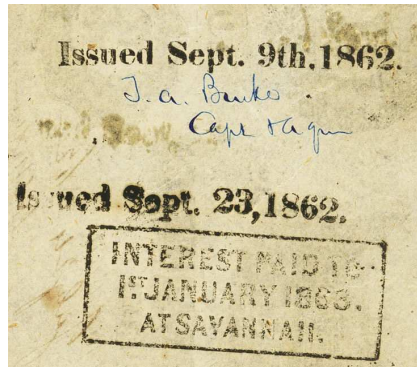 Issued Sept. 9th, 1862.
Capt & aqm
Issued Sept. 23, 1862.
INTEREST PAID TO
1ST JANUARY 1863.
AT SAVANNAH.